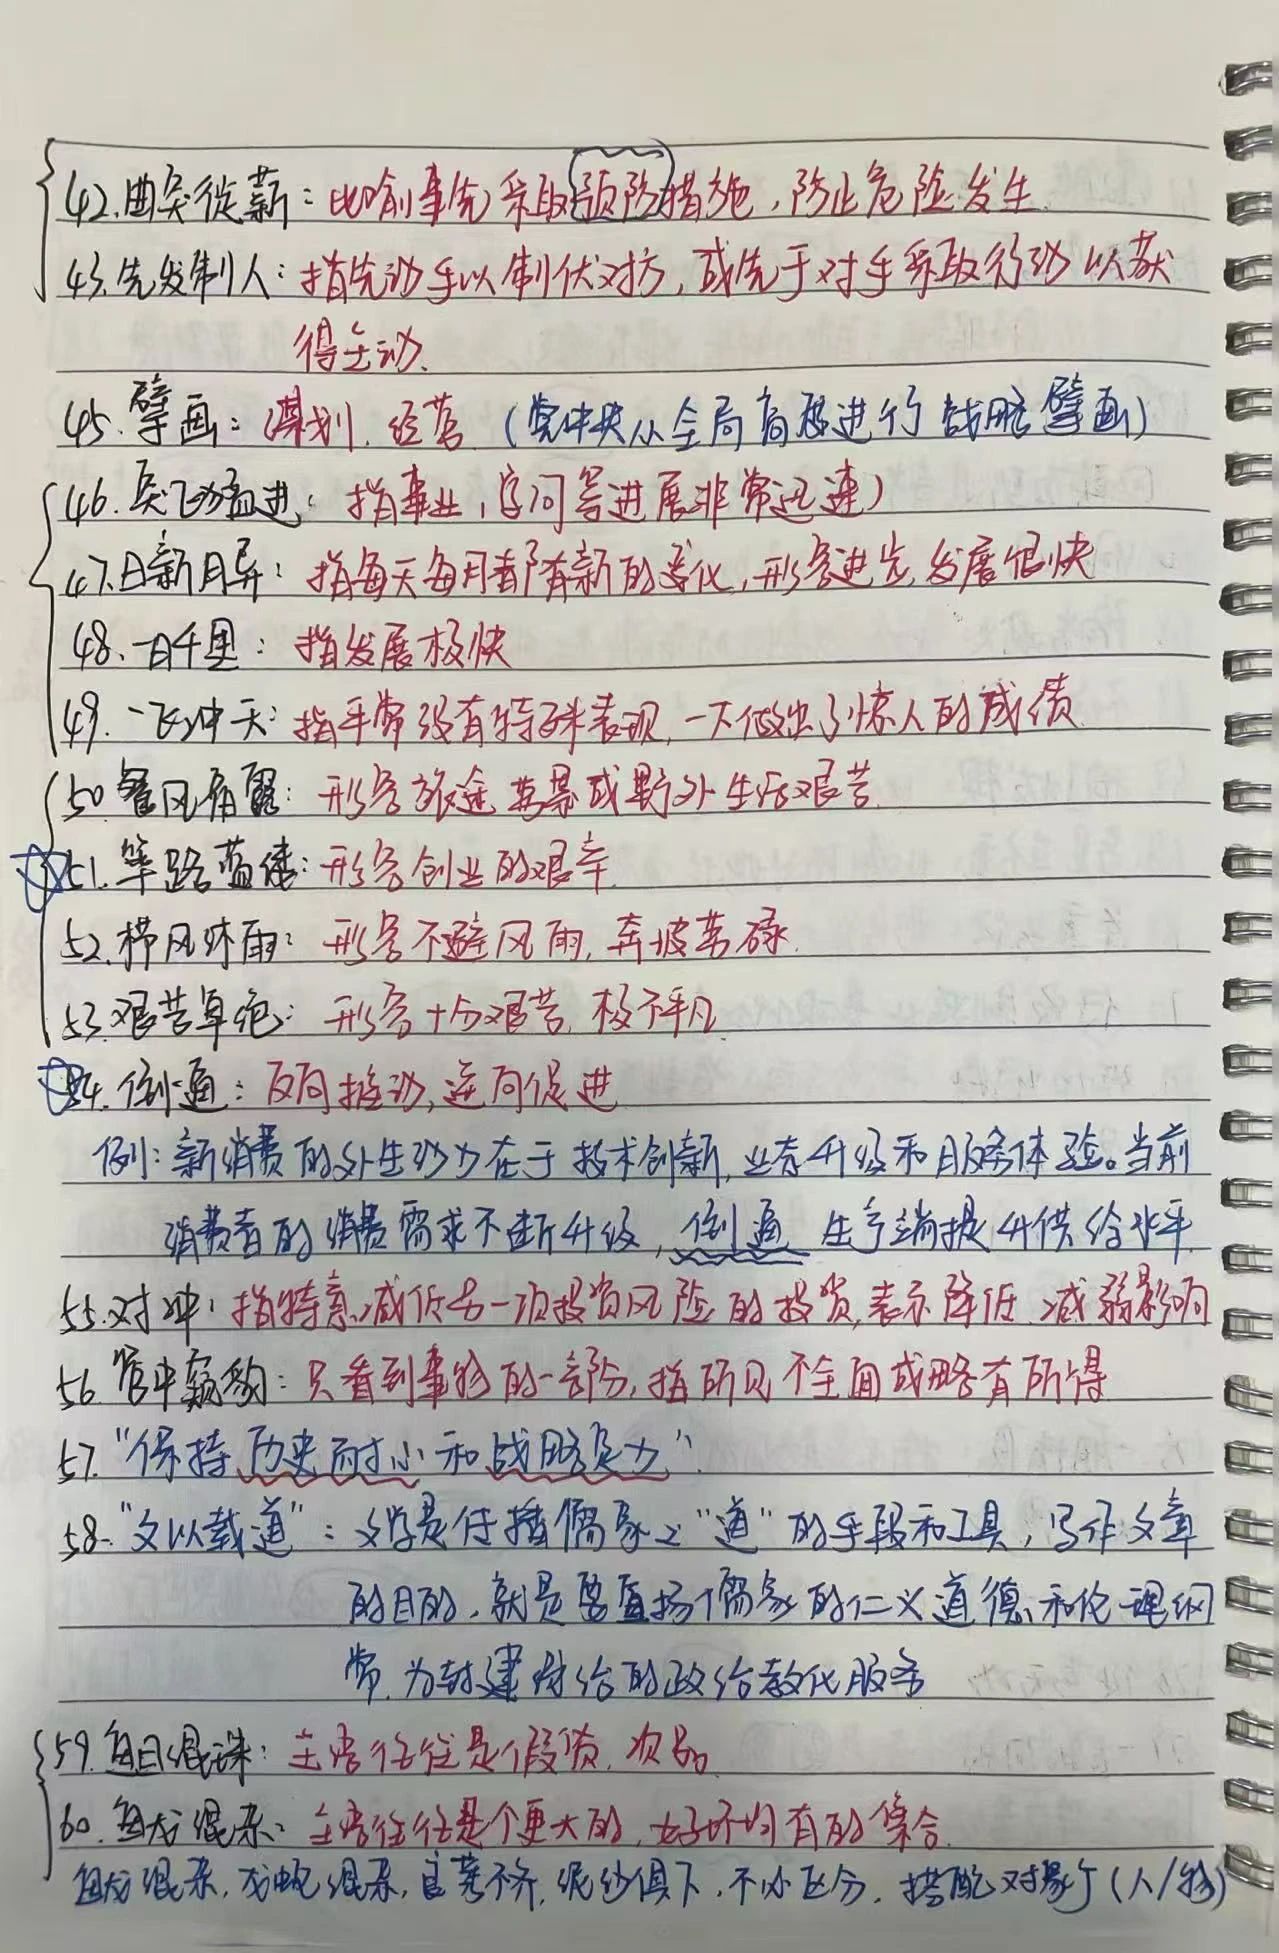 42.曲突徙薪：比喻事先采取预防措施，防止危险发生.
43.先发制人：指先动手以制伏对方，或先于对手采取行动以获
得主动.
45.擘画：谋划.经营（党中央从全局高度进行战略擘画）
46.突飞猛进：指事业,学问等进展非常迅速）
47.日新月异：指每天每月都有新的变化,形容进步,发展很快
48.一日千里：指发展极快
49.一飞冲天：指平常没有特殊表现,一下做出了惊人的成绩.
50.餐风宿露：形容旅途劳累或野外生活艰苦.
51.筚路蓝缕：形容创业的艰辛.
52.栉风沐雨：形容不避风雨,奔波劳碌.
53.艰苦卓绝：形容十分艰苦,极不平凡.
54.倒逼：反向推动,逆向促进.
例：新消费的外生动力在于技术创新,业态升级和服务体验。当前
消费者的消费需求不断升级,倒逼 生产端提升供给水平.
55.对冲：指特意减低另一项投资风险的投资,表示降低.减弱影响
56.管中窥豹：只看到事物的一部分,指所见不全面或略有所得
57.“保持历史耐心和战略定力”.
58.“文以载道”：文学是传播儒家之“道”的手段和工具，写作文章
的目的，就是要宣扬儒家的仁义道德和伦理纲
常.为封建统治的政治教化服务
59.鱼目混珠：主语往往是假货.次品
60.鱼龙混杂：主语往往是个更大的,好坏均有的集合.
鱼龙混杂,龙蛇混杂,良莠不齐,泥沙俱下，不必区分，搭配对象广（人/物）